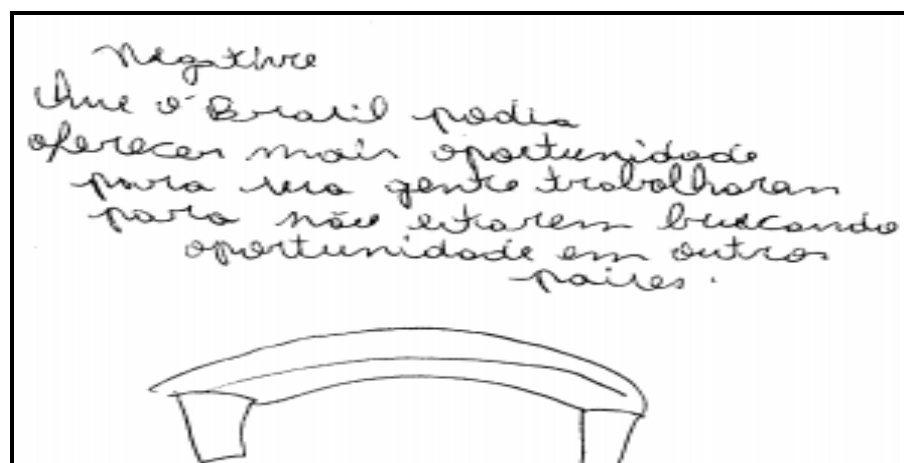 Negativre
Que o Brasil podia
oferecer mais oportunidade
para sua gente trabalharam
para não estarem buscando
oportunidade em outros
paises.